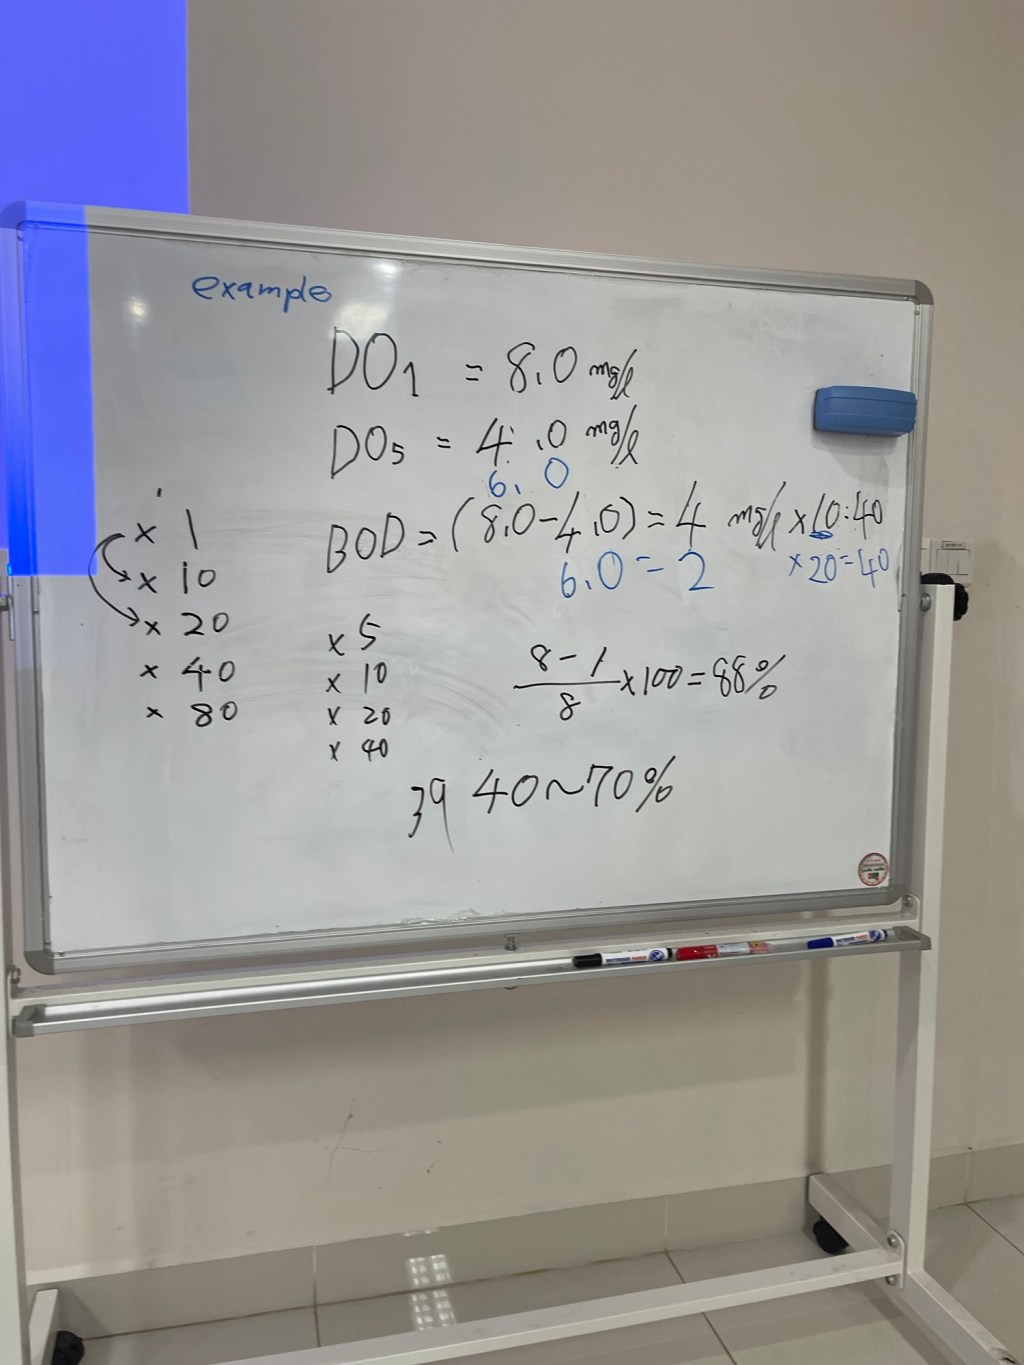 example
DO₁ = 8.0 mg/l
DO₅ = 4.0 mg/l
6.0
BOD = (8.0-4.0) = 4 mg/l x10:40
6.0 = 2 x20=40
x 1
x 10
x 20
x 40
x 80
x 5
x 10
x 20
x 40
8-1
8
x100=88%
39 40~70%